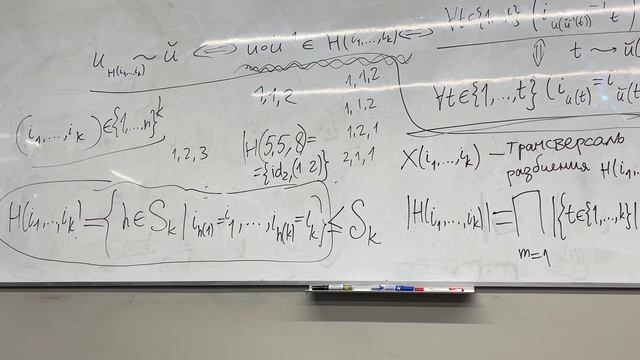 u ~_{H(i₁,...,i_k)} ŭ ⟺ u∘ŭ⁻¹ ∈ H(i₁,...,i_k) ⟺ ∀t∈{1,...,} (i_{u(ŭ⁻¹(t))} = i_t
⇓ t ⇝ ŭ(t
∀t∈{1,...,t} (i_{u(t)} = i_{ŭ(t
(i₁,...,i_k) ∈ {1,...,n}^k
1,1,2
1,1,2
1,1,2
1,2,1
2,1,1
1,2,3
|H(5,5,8)=
={id₂,(1 2)}
X(i₁,...,i_k) – трансверсаль
разбиения H(i₁,
H(i₁,...,i_k) = {h∈S_k | i_{h(1)}=i₁,...,i_{h(k)}=i_k} ≤ S_k
|H(i₁,...,i_k)| = ∏_{m=1} |{t∈{1,...,k}|